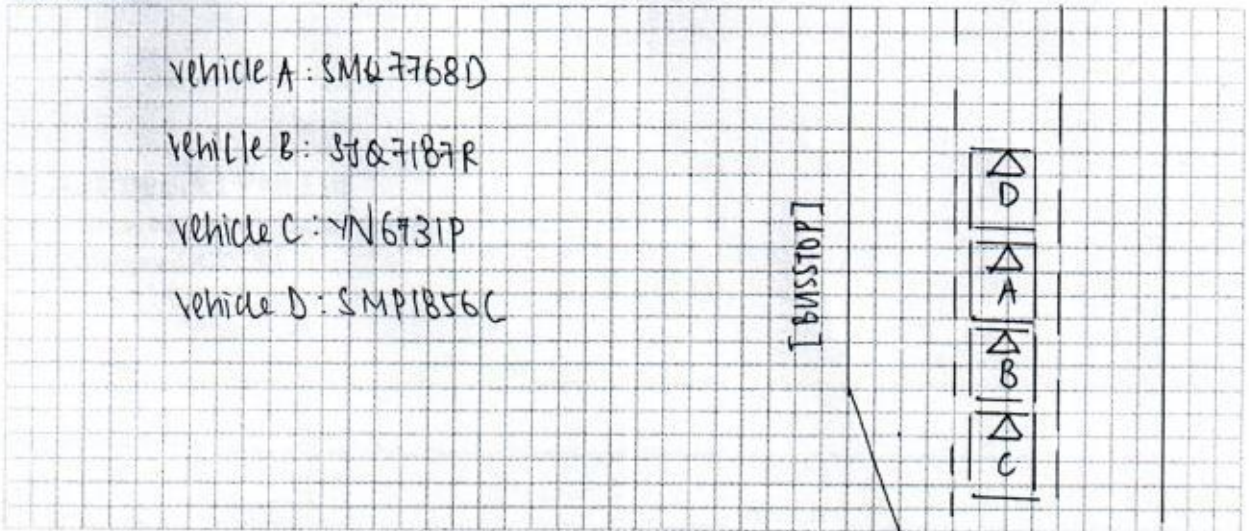 vehicle A: SMQ7768D
vehicle B: SJQ7187R
vehicle C: YN6731P
vehicle D: SMP1856C
[BUSSTOP]
D
A
B
C